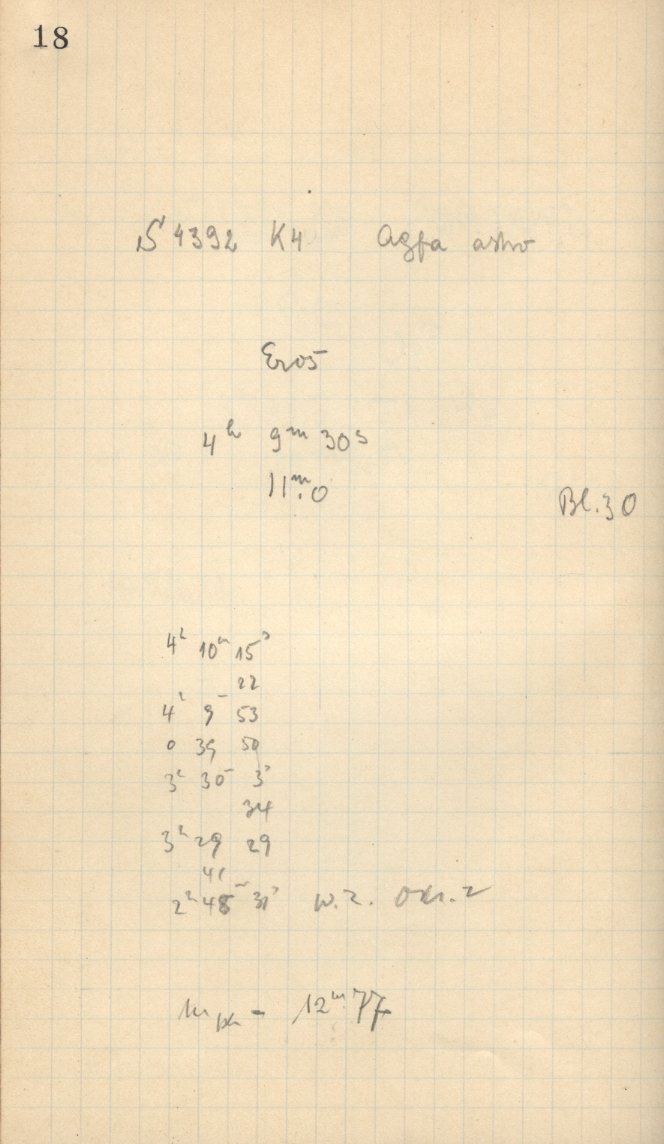 18
S 4392 K4 Agfa astro
Eros
4h 9m 30s
11m.0
Bl. 30
4h 10m 15s
22
4h 9m 53
0 39 50
3h 30m 3s
34
3h 29 29
41
2h 48m 31s w.z.
mph = 12m.77